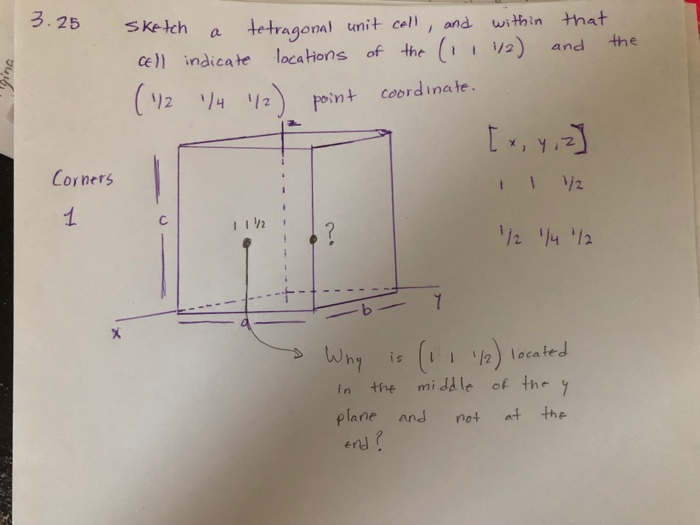 3.25 Sketch a tetragonal unit cell, and within that
cell indicate locations of the (1 1 1/2) and the
(1/2 1/4 1/2) point coordinate.
z
[x, y, z]
Corners
1
1 1 1/2
c
1 1 1/2
?
1/2 1/4 1/2
x
a
b
y
Why is (1 1 1/2) located
in the middle of the y
plane and not at the
end?